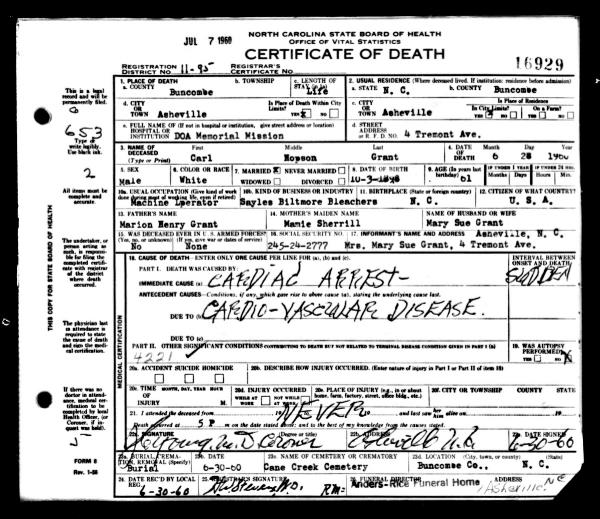 JUL 7 1960
NORTH CAROLINA STATE BOARD OF HEALTH
OFFICE OF VITAL STATISTICS
CERTIFICATE OF DEATH
16929
REGISTRATION DISTRICT NO. 11-95 REGISTRAR'S CERTIFICATE NO.
1. PLACE OF DEATH a. COUNTY Buncombe b. TOWNSHIP c. LENGTH OF STAY (in 1a) Life
2. USUAL RESIDENCE (Where deceased lived. If institution: residence before admission) a. STATE N. C. b. COUNTY Buncombe
d. CITY OR TOWN Asheville Is Place of Death Within City Limits? YES X NO
c. CITY OR TOWN Asheville Is Place of Residence In City Limits? On a Farm?
e. FULL NAME OF (If not in hospital or institution, give street address or location) HOSPITAL OR INSTITUTION DOA Memorial Mission
d. STREET ADDRESS or R. F. D. NO. 4 Tremont Ave.
3. NAME OF DECEASED (Type or Print) First Carl Middle Hopson Last Grant
4. DATE OF DEATH Month 6 Day 28 Year 1960
5. SEX Male 6. COLOR OR RACE White 7. MARRIED X NEVER MARRIED WIDOWED DIVORCED 8. DATE OF BIRTH 10-3-1898 9. AGE (In years last birthday) 61 IF UNDER 1 YEAR Months Days IF UNDER 24 HRS. Hours Min.
10a. USUAL OCCUPATION (Give kind of work done during most of working life, even if retired) Machine Operator
10b. KIND OF BUSINESS OR INDUSTRY Sayles Biltmore Bleachers
11. BIRTHPLACE (State or foreign country) N. C.
12. CITIZEN OF WHAT COUNTRY? U. S. A.
13. FATHER'S NAME Marion Henry Grant
14. MOTHER'S MAIDEN NAME Mamie Sherrill
NAME OF HUSBAND OR WIFE Mary Sue Grant
15. WAS DECEASED EVER IN U.S. ARMED FORCES? (Yes, no, or unknown) No (If yes, give war or dates of service) None
16. SOCIAL SECURITY NO. 245-24-2777
17. INFORMANT'S NAME AND ADDRESS Asheville, N. C.
Mrs. Mary Sue Grant, 4 Tremont Ave.
18. CAUSE OF DEATH—ENTER ONLY ONE CAUSE PER LINE FOR (a), (b) and (c).
INTERVAL BETWEEN ONSET AND DEATH
PART I. DEATH WAS CAUSED BY:
IMMEDIATE CAUSE (a) CARDIAC ARREST- SUDDEN
ANTECEDENT CAUSES—Conditions, if any, which gave rise to above cause (a), stating the underlying cause last.
DUE TO (b) CARDIO-VASCULAR DISEASE.
DUE TO (c)
PART II. OTHER SIGNIFICANT CONDITIONS CONTRIBUTING TO DEATH BUT NOT RELATED TO TERMINAL DISEASE CONDITION GIVEN IN PART I (a)
4221
19. WAS AUTOPSY PERFORMED? YES NO X
20a. ACCIDENT SUICIDE HOMICIDE
20b. DESCRIBE HOW INJURY OCCURRED. (Enter nature of injury in Part I or Part II of item 18)
20c. TIME OF INJURY MONTH, DAY, YEAR HOUR M.
20d. INJURY OCCURRED WHILE AT WORK NOT WHILE AT WORK
20e. PLACE OF INJURY (e.g., in or about home, farm, factory, street, office bldg., etc.)
20f. CITY OR TOWNSHIP COUNTY STATE
21. I attended the deceased from NEVER 19 and last saw her him alive on 19
Death occurred at 5 P m. on the date stated above; and to the best of my knowledge, from the causes stated.
22a. SIGNATURE (Degree or title) M.D. Coroner
22b. ADDRESS
22c. DATE SIGNED 6-30-60
23a. BURIAL, CREMATION, REMOVAL (Specify) Burial
23b. DATE 6-30-60
23c. NAME OF CEMETERY OR CREMATORY Cane Creek Cemetery
23d. LOCATION (City, town, or county) (State) Buncombe Co., N. C.
24. DATE REC'D BY LOCAL REG. 6-30-60
25. REGISTRAR'S SIGNATURE
26. FUNERAL DIRECTOR ADDRESS
Anders-Rice Funeral Home Asheville NC
This is a legal record and will be permanently filed.
653
Type or write legibly. Use black ink.
2
All items must be complete and accurate.
The undertaker, or person acting as such, is responsible for filing the completed certificate with registrar of the district where death occurred.
The physician last in attendance is required to state the cause of death and sign the medical certification.
If there was no doctor in attendance, medical certification to be completed by local Health Officer, (or Coroner, if inquest was held.)
FORM 8
Rev. 1-56
THIS COPY FOR STATE BOARD OF HEALTH
MEDICAL CERTIFICATION